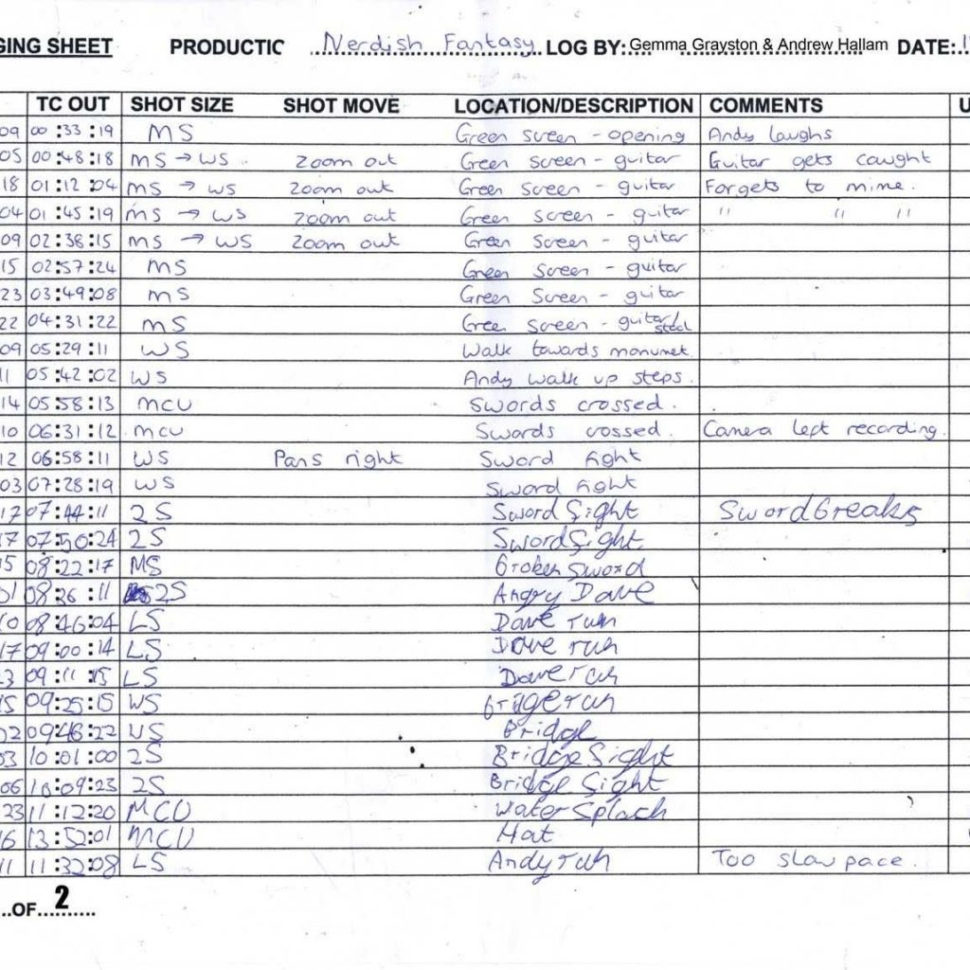 GING SHEET PRODUCTIC Nerdish Fantasy LOG BY: Gemma Grayston & Andrew Hallam DATE:
TC OUT SHOT SIZE SHOT MOVE LOCATION/DESCRIPTION COMMENTS U
09 00:33:19 MS Green screen - opening Andy laughs
05 00:48:18 MS → WS Zoom out Green screen - guitar Guitar gets caught
18 01:12:04 MS → WS Zoom out Green screen - guitar Forgets to mime.
04 01:45:19 MS → WS Zoom out Green screen - guitar " " "
09 02:38:15 MS → WS Zoom out Green screen - guitar
15 02:57:24 MS Green screen - guitar
23 03:49:08 MS Green screen - guitar
22 04:31:22 MS Green screen - guitar
09 05:29:11 WS Walk towards monumet.
11 05:42:02 WS Andy walk up steps.
14 05:58:13 MCU Swords crossed.
10 06:31:12 MCU Swords crossed. Camera left recording.
12 06:58:11 WS Pans right Sword fight
03 07:28:19 WS Sword fight
17 07:44:11 2S Sword fight Sword breaks
17 07:50:24 2S Sword fight
15 08:22:17 MS broken sword
01 08:26:11 2S Angry Dave
10 08:46:04 LS Dave run
17 09:00:14 LS Dave run
23 09:11:15 LS Dave run
15 09:25:15 WS brige run
02 09:46:22 WS Bridge
03 10:01:00 2S Bridge fight
06 10:09:23 2S Bridge fight
23 11:12:20 MCU Water Splach
16 13:52:01 MCU Hat
11 11:32:08 LS Andy run Too slow pace.
..OF 2